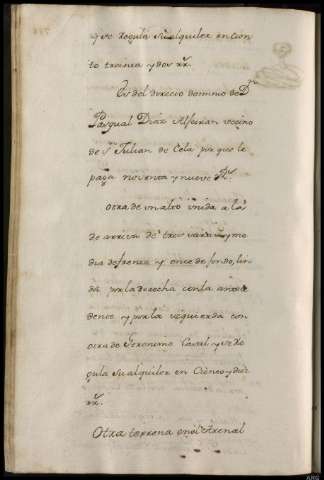 que Regula su alquiler en cien
to treinta y dos rr.
Es del directo dominio de Dn
Pasqual Diaz vecino
de Sn Julian de Cela por que le
paga noventa y nueve Rs
otra de un alto unida a la
de arriva de tres varas y me
dia de frente y once de fondo, lin
da por la derecha con la antece
dente y por la izquierda con
otra de Geronimo y se Re
gula su alquiler en Ciento y diez
rr.
Otra terrena en el Arenal